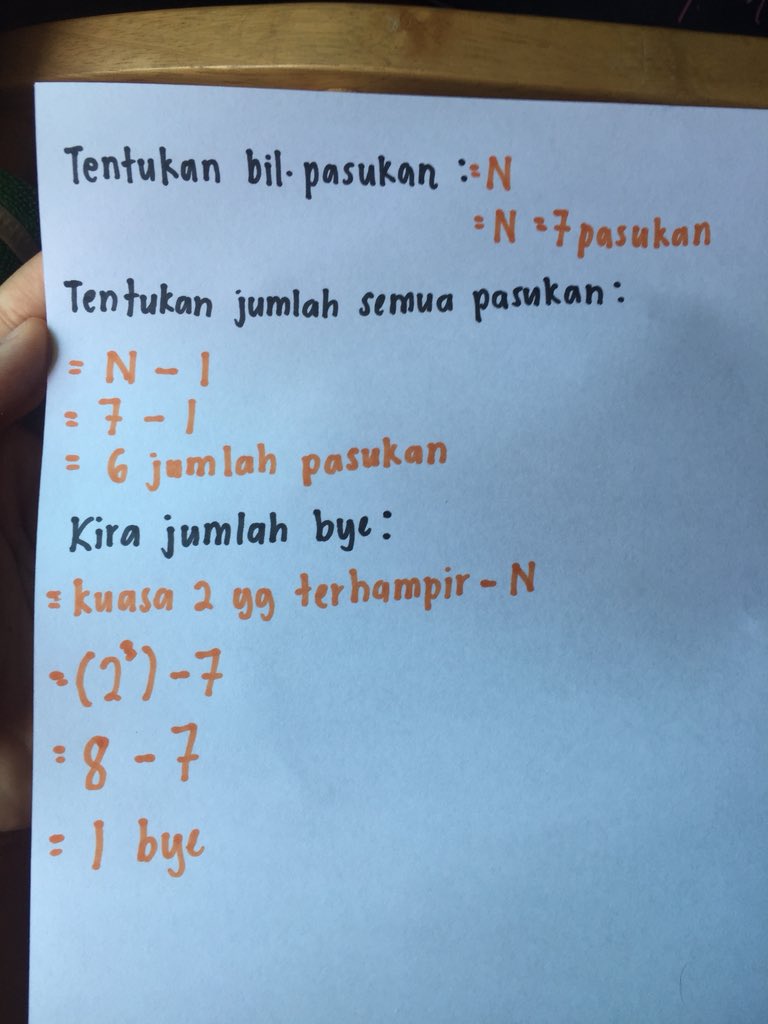 Tentukan bil. pasukan := N
= N = 7 pasukan
Tentukan jumlah semua pasukan:
= N - 1
= 7 - 1
= 6 jumlah pasukan
Kira jumlah bye:
= kuasa 2 yg terhampir - N
= (2³) - 7
= 8 - 7
= 1 bye